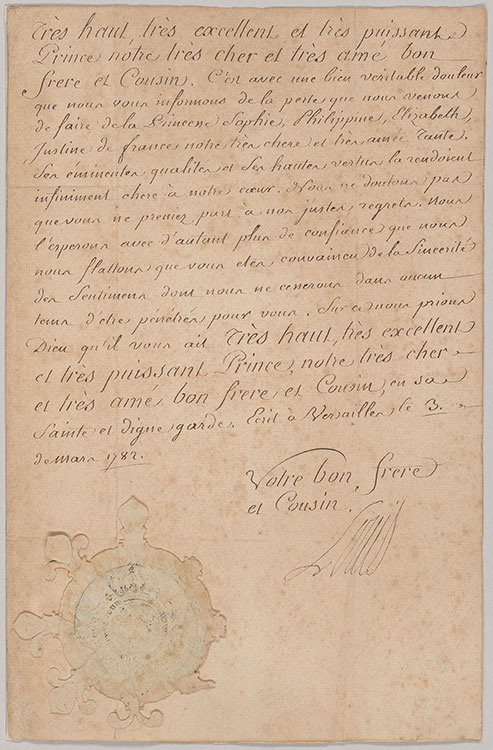 Très haut, très excellent et très puissant
Prince notre très cher et très amé bon
frere et Cousin. C'est avec une bien veritable douleur
que nous vous informons de la perte que nous venons
de faire de la Princesse Sophie, Philippine, Elizabeth,
Justine de france notre très chere et très amée Tante.
Ses eminentes qualités et Ses hautes vertus la rendoient
infiniment chere à notre cœur. Nous ne doutons pas
que vous ne preniez part à nos justes regrets. Nous
l'esperons avec d'autant plus de confiance que nous
nous flattons que vous etes convaincu de la Sincerité
des Sentimens dont nous ne cesserons dans aucun
tems d'etre pénétrés pour vous. Sur ce nous prions
Dieu qu'il vous ait Très haut, très excellent
et très puissant Prince, notre très cher
et très amé bon frere et Cousin, en sa
Sainte et digne garde. Ecrit à Versailles le 3.
de Mars 1782.
Votre bon frere
et Cousin.
Louis